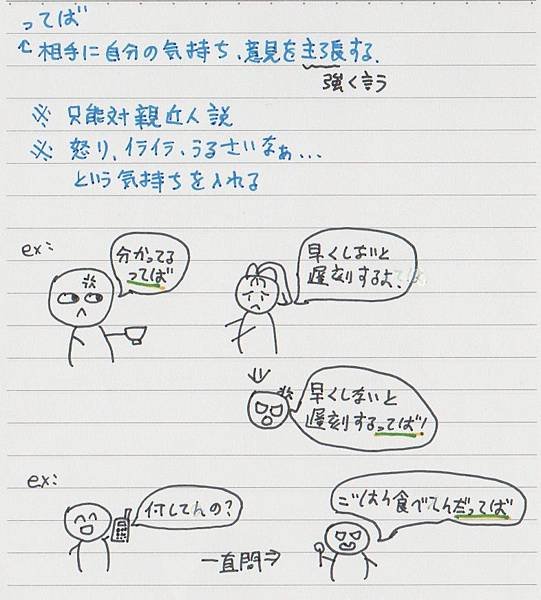 ってば
↑相手に自分の気持ち、意見を主張する.
強く言う
※ 只能対親近人説
※ 怒り、イライラ、うるさいなぁ...
という気持ちを入れる
ex:
分かってる
ってば
早くしないと
遅刻するよ.
早くしないと
遅刻するってば!
ex:
何してんの?
ごはん食べてんだってば
一直問⇒